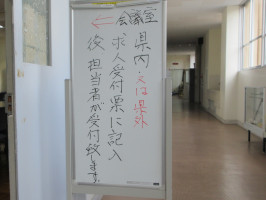 ← 会議室
県内・又は県外
求人受付票に記入
後、担当者が受付致します。